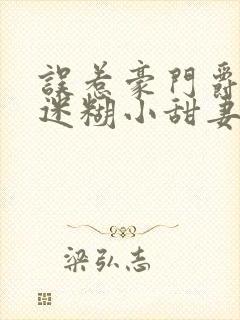 誤惹豪門爵
迷糊小甜妻
梁弘志